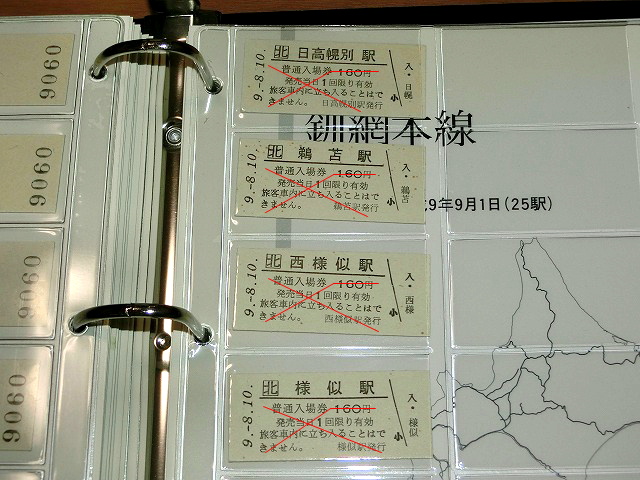 9060
9060
9060
9060
北 日高幌別駅
普通入場券 160円
発売当日1回限り有効
旅客車内に立ち入ることはで
きません。 日高幌別駅発行
9.-8.10.
入・日幌
小
北 鵜苫駅
普通入場券 160円
発売当日1回限り有効
旅客車内に立ち入ることはで
きません。 鵜苫駅発行
9.-8.10.
入・鵜苫
小
北 西様似駅
普通入場券 160円
発売当日1回限り有効
旅客車内に立ち入ることはで
きません。 西様似駅発行
9.-8.10.
入・西様
小
北 様似駅
普通入場券 160円
発売当日1回限り有効
旅客車内に立ち入ることはで
きません。 様似駅発行
9.-8.10.
入・様似
小
釧網本線
9年9月1日(25駅)